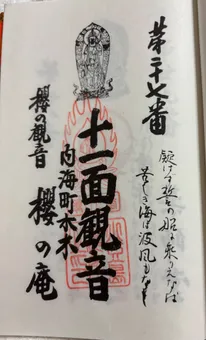 第二十七番
疑はず誓の船に乗りえなば
苦しき海に波風もなし
十一面観音
内海町水木
櫻の観音
櫻の庵